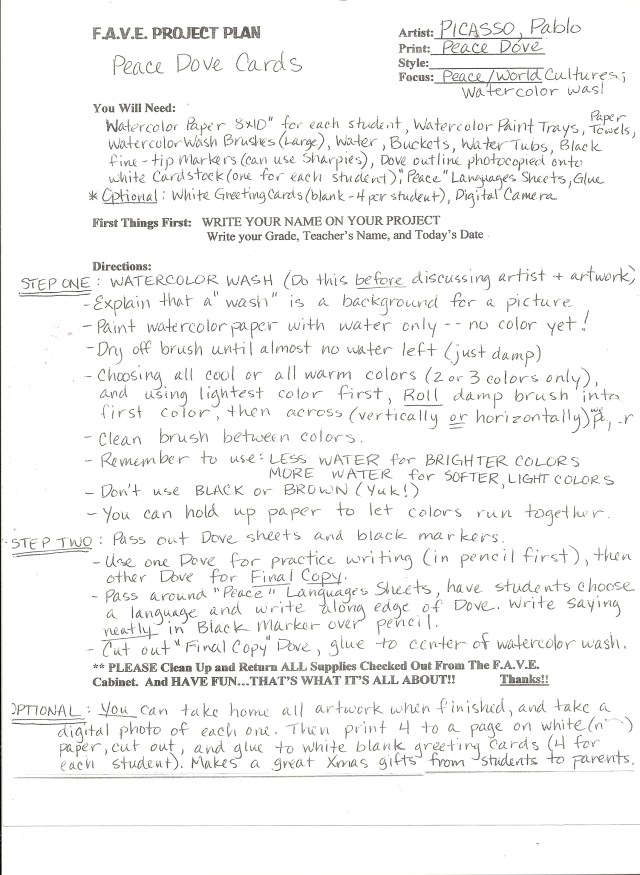 F.A.V.E. PROJECT PLAN
Peace Dove Cards
Artist: PICASSO, Pablo
Print: Peace Dove
Style:
Focus: Peace/World Cultures;
Watercolor wash
You Will Need:
Watercolor Paper 8x10" for each student, Watercolor Paint Trays, Paper Towels,
Watercolor Wash Brushes (Large), Water, Buckets, Water Tubs, Black
fine-tip Markers (can use Sharpies), Dove outline photocopied onto
white Cardstock (one for each student), "Peace" Languages Sheets, Glue
* Optional: White Greeting Cards (blank - 4 per student), Digital Camera
First Things First: WRITE YOUR NAME ON YOUR PROJECT
Write your Grade, Teacher's Name, and Today's Date
Directions:
STEP ONE: WATERCOLOR WASH (Do this before discussing artist + artwork)
- Explain that a "wash" is a background for a picture
- Paint watercolor paper with water only -- no color yet!
- Dry off brush until almost no water left (just damp)
- Choosing all cool or all warm colors (2 or 3 colors only),
and using lightest color first, Roll damp brush into
first color, then across (vertically or horizontally)
- Clean brush between colors.
- Remember to use: LESS WATER for BRIGHTER COLORS
MORE WATER for SOFTER, LIGHT COLORS
- Don't use BLACK or BROWN (Yuk!)
- You can hold up paper to let colors run together.
STEP TWO: Pass out Dove sheets and black markers.
- Use one Dove for practice writing (in pencil first), then
other Dove for Final Copy.
- Pass around "Peace" Languages Sheets, have students choose
a language and write along edge of Dove. Write saying
neatly in Black Marker over pencil.
- Cut out "Final Copy" Dove, glue to center of watercolor wash.
** PLEASE Clean Up and Return ALL Supplies Checked Out From The F.A.V.E.
Cabinet. And HAVE FUN...THAT'S WHAT IT'S ALL ABOUT!! Thanks!!
OPTIONAL: You can take home all artwork when finished, and take a
digital photo of each one. Then print 4 to a page on white
paper, cut out, and glue to white blank greeting cards (4 for
each student). Makes a great Xmas gifts from students to parents.